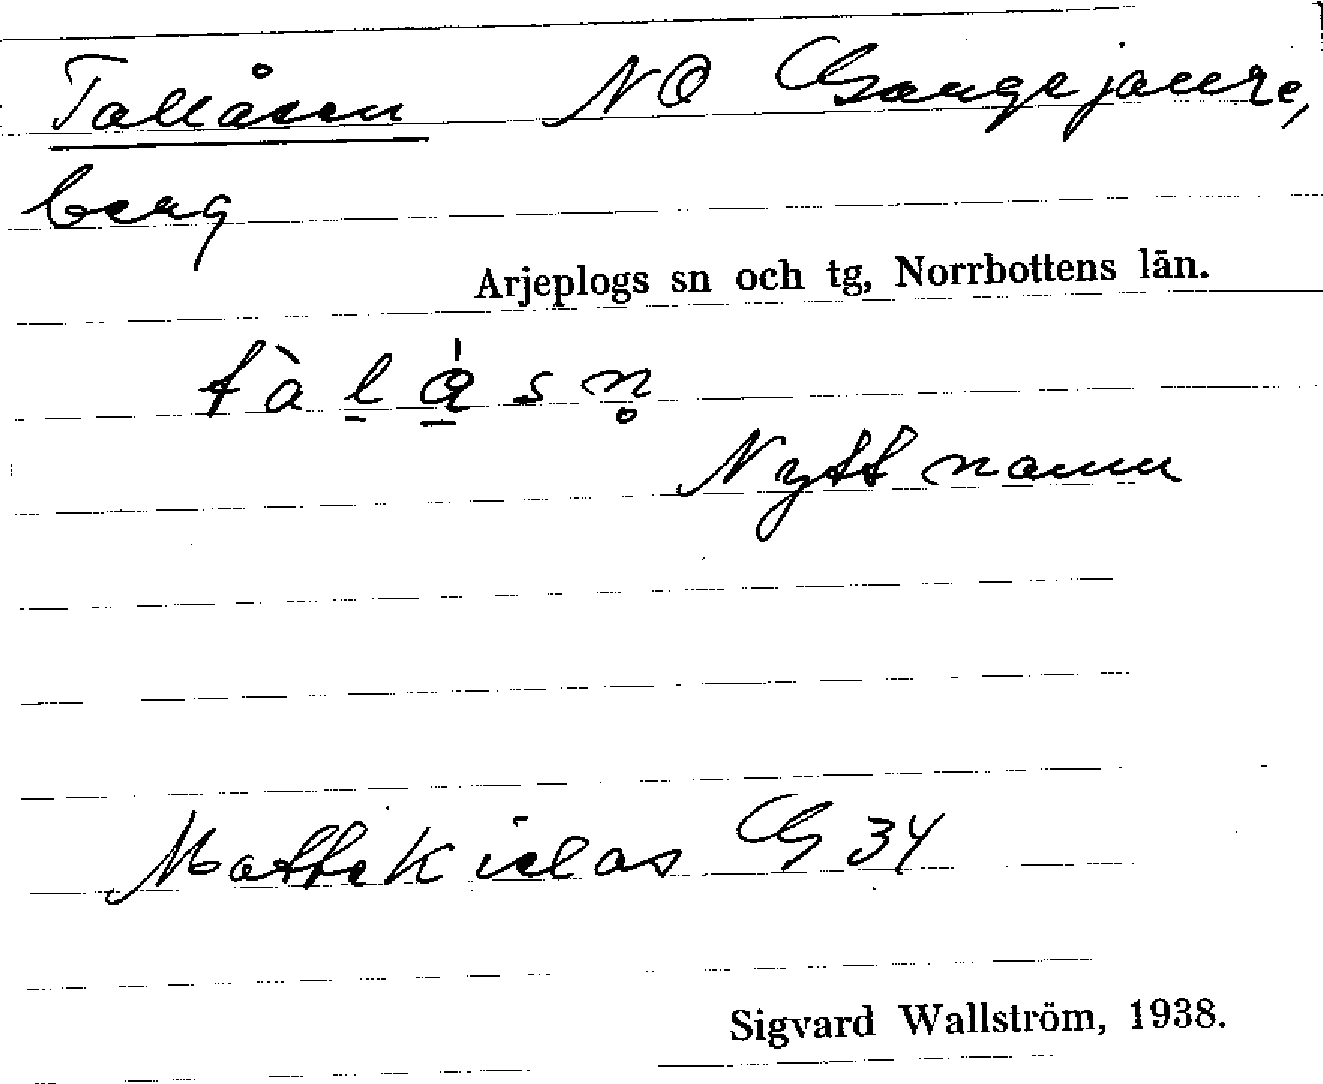 Tallåsen NO Gaugejaure,
berg
Arjeplogs sn och tg, Norrbottens län.
tàl̲å̲sn̥
Nytt namn
Matte Kielas G 34
Sigvard Wallström, 1938.